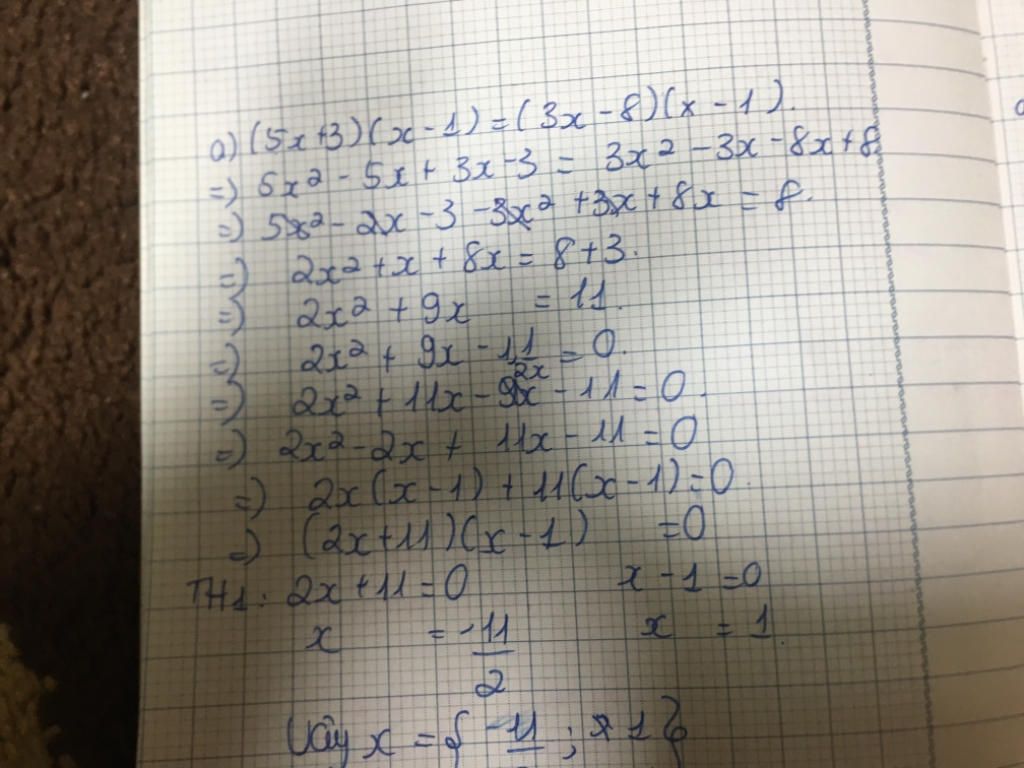 a) (5x+3)(x-1)=(3x-8)(x-1).
=) 5x² - 5x + 3x - 3 = 3x² - 3x - 8x + 8
=) 5x² - 2x - 3 - 3x² + 3x + 8x = 8.
=) 2x² + x + 8x = 8+3.
=) 2x² + 9x = 11.
=) 2x² + 9x - 11 = 0.
=) 2x² + 11x - 2x - 11 = 0.
=) 2x² - 2x + 11x - 11 = 0
=) 2x(x-1) + 11(x-1) = 0.
=) (2x+11)(x-1) = 0
TH1: 2x+11=0 x-1=0
x = -11/2 x = 1.
Vậy x = { -11 ; 1 }